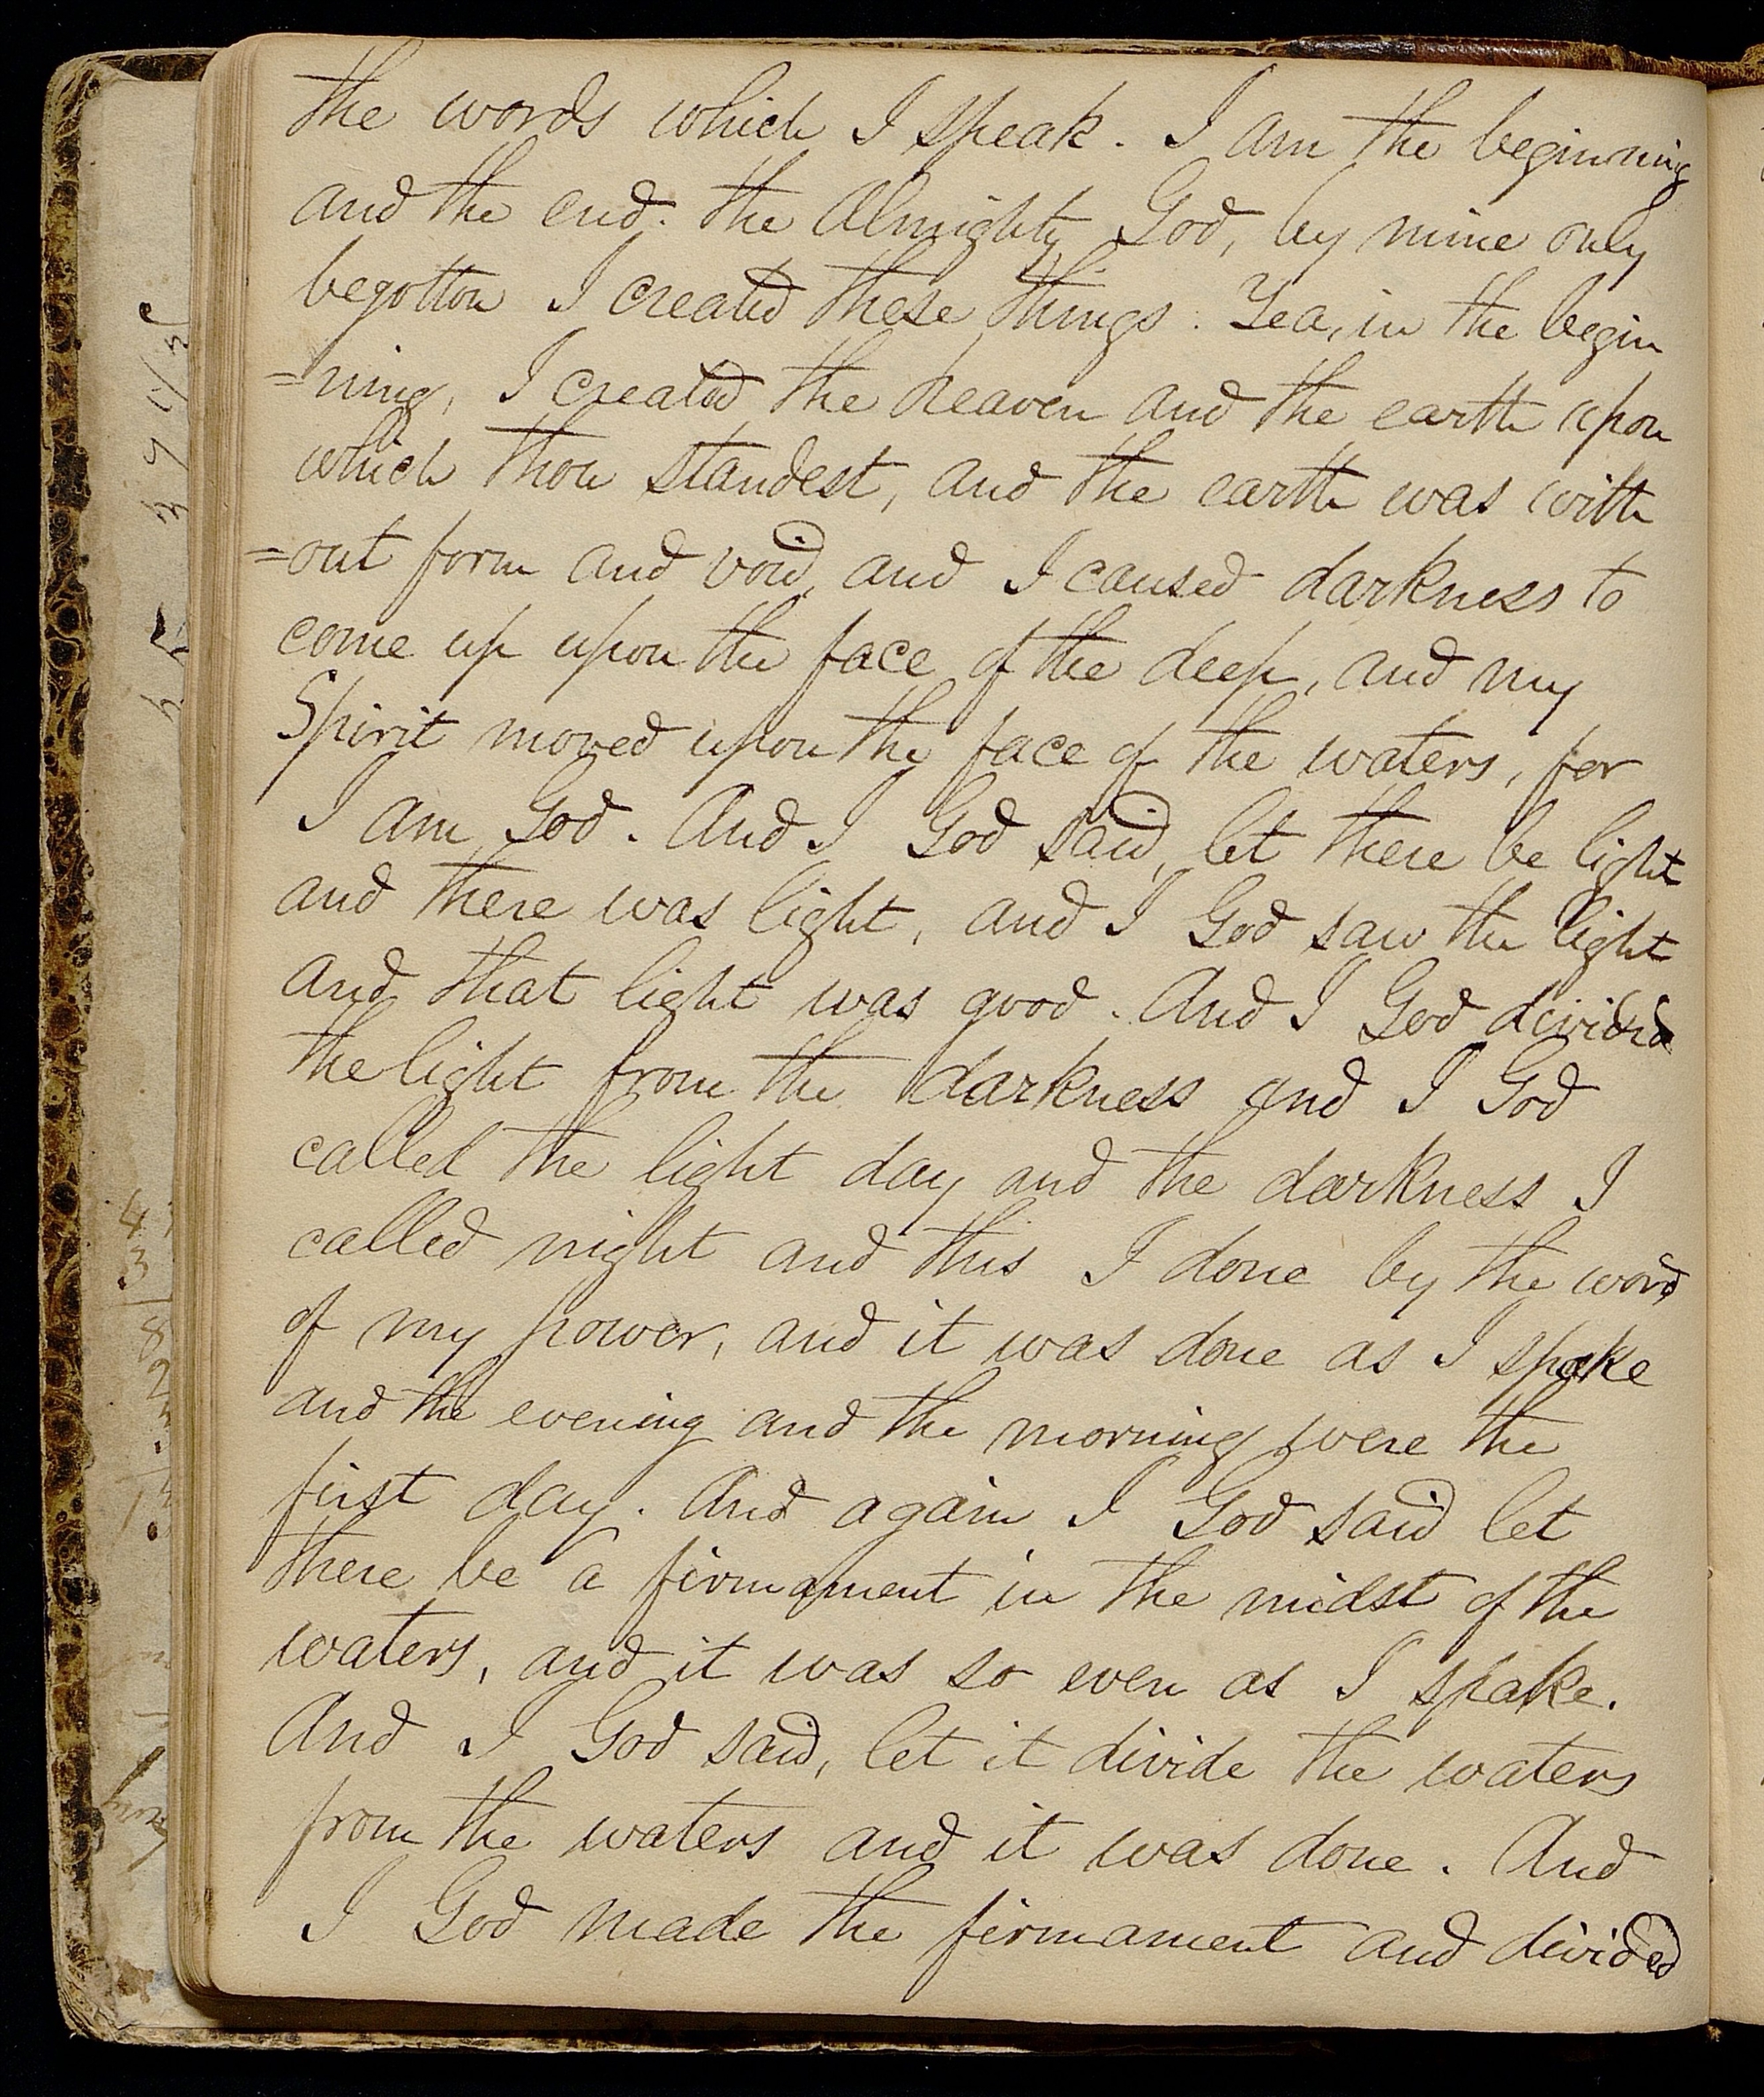 the words which I speak. I am the beginning
and the end. the Almighty God, by mine only
begotton I created these things. Yea, in the begin
=ning, I created the heaven and the earth upon
which thou standest, and the earth was with
=out form and void, and I caused darkness to
come up upon the face of the deep, and my
Spirit moved upon the face of the waters, for
I am God. And I God said, let there be light
and there was light, and I God saw the light
and that light was good. And I God divided
the light from the darkness and I God
called the light day and the darkness I
called night and this I done by the word
of my power, and it was done as I spake
and the evening and the morning were the
first day. And again I God said let
there be a firmament in the midst of the
waters, and it was so even as I spake.
And I God said, let it divide the waters
from the waters and it was done. And
I God made the firmament and divided